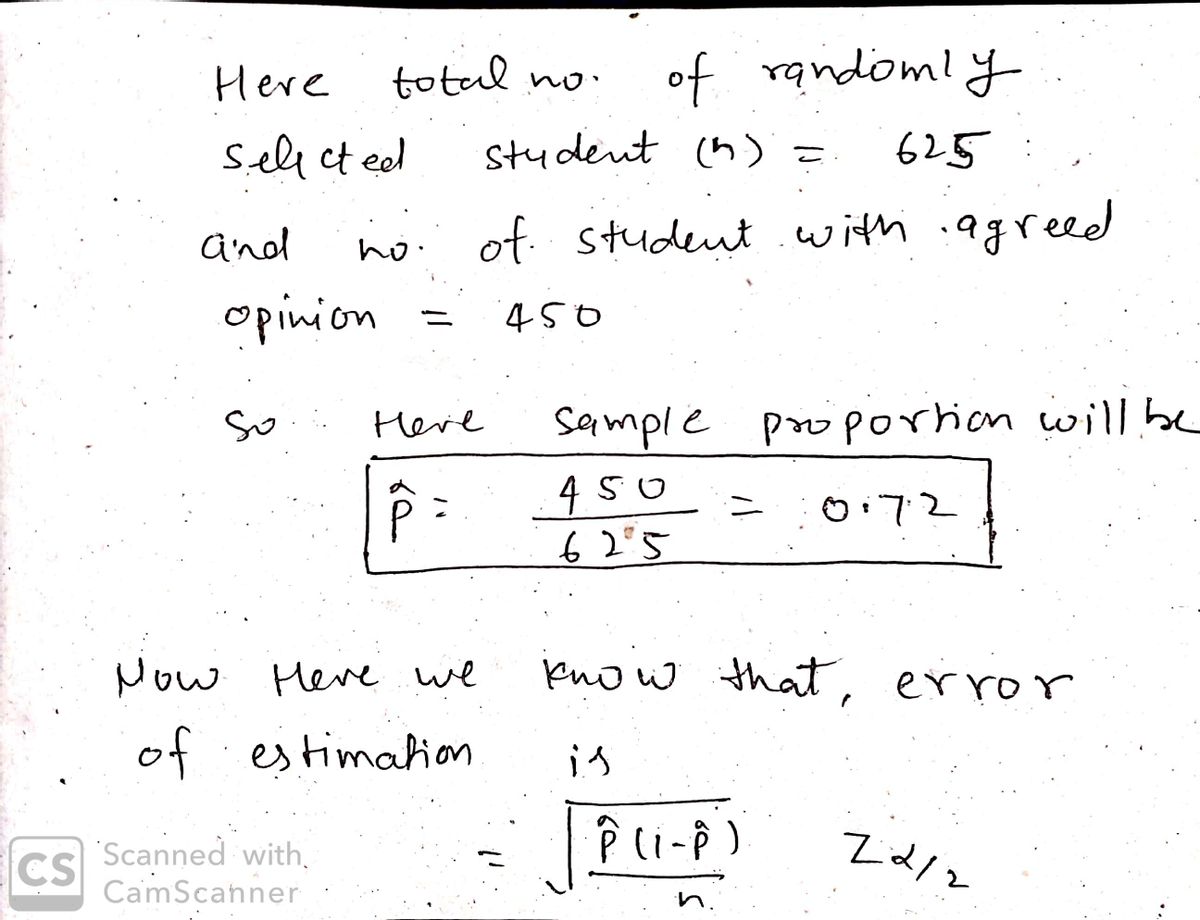 Here total no. of randomly
selected student (n) = 625
and no. of student with agreed
opinion = 450
so Here sample proportion will be
p̂ = 450/625 = 0.72
Now Here we know that, error
of estimation is
= √(p̂(1-p̂)/n) Zα/2
CS Scanned with
CamScanner